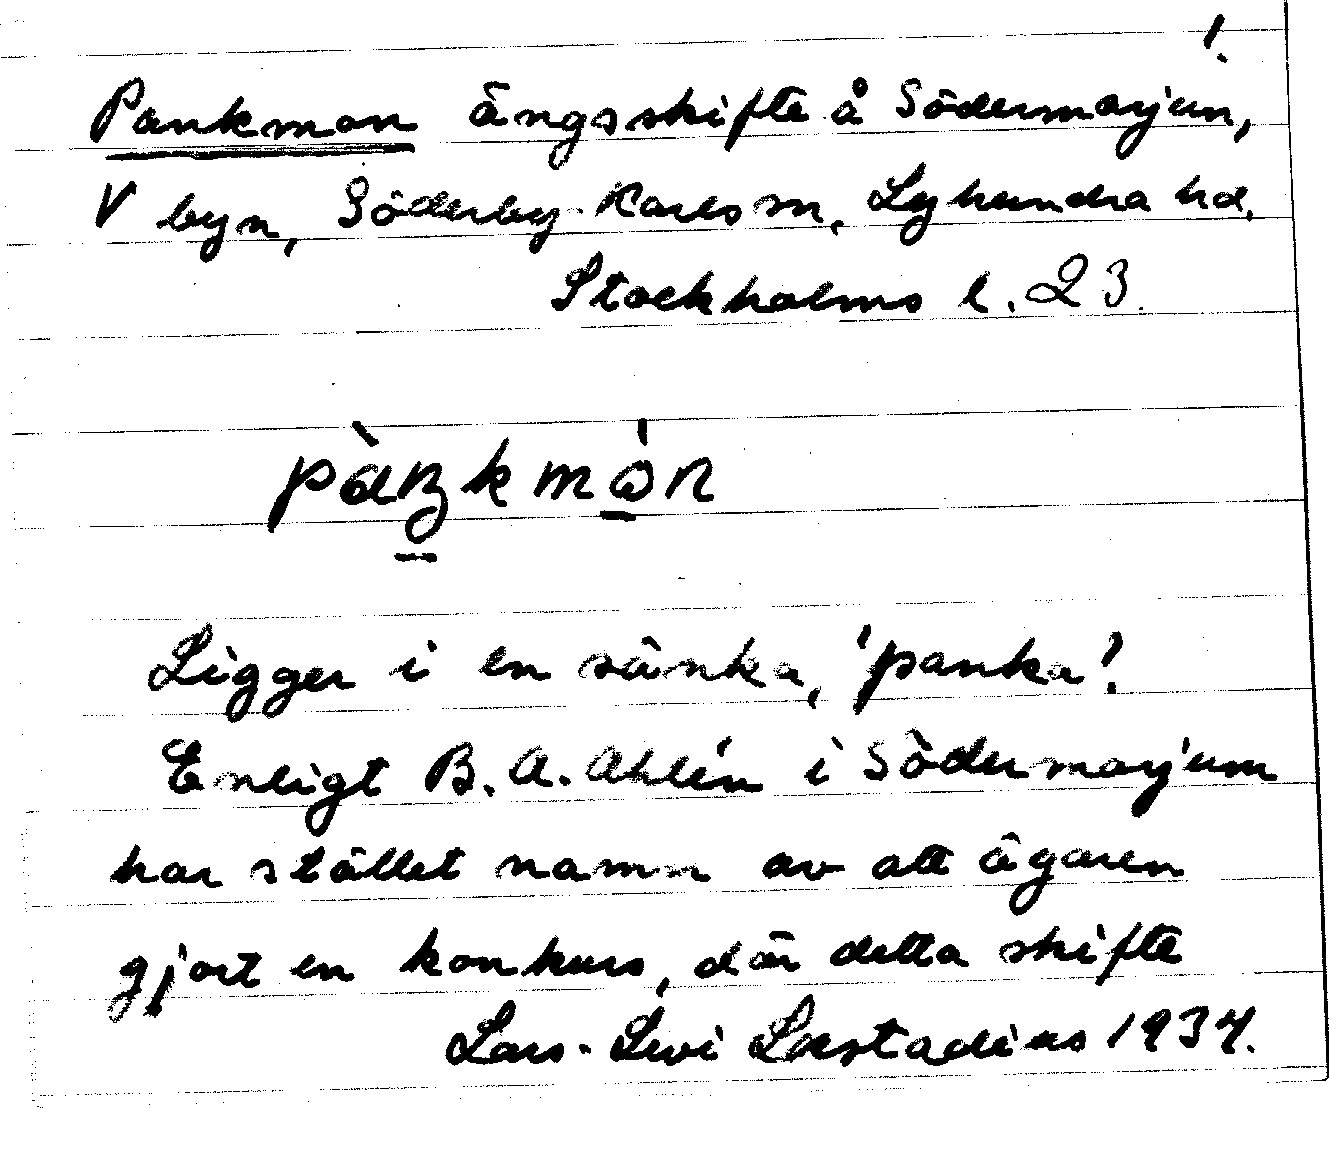 1.
Pankmon ängsskifte å Södermarjum,
V byn, Söderby-Karls sn, Lyhundra hd.
Stockholms l. 23.
pàŋkmȯn
Ligger i en sänka, 'panka'.
Enligt B. A. Ahlén i Södermarjum
har stället namn av att ägaren
gjort en konkurs, där detta skifte
Lars-Levi Læstadius 1934.